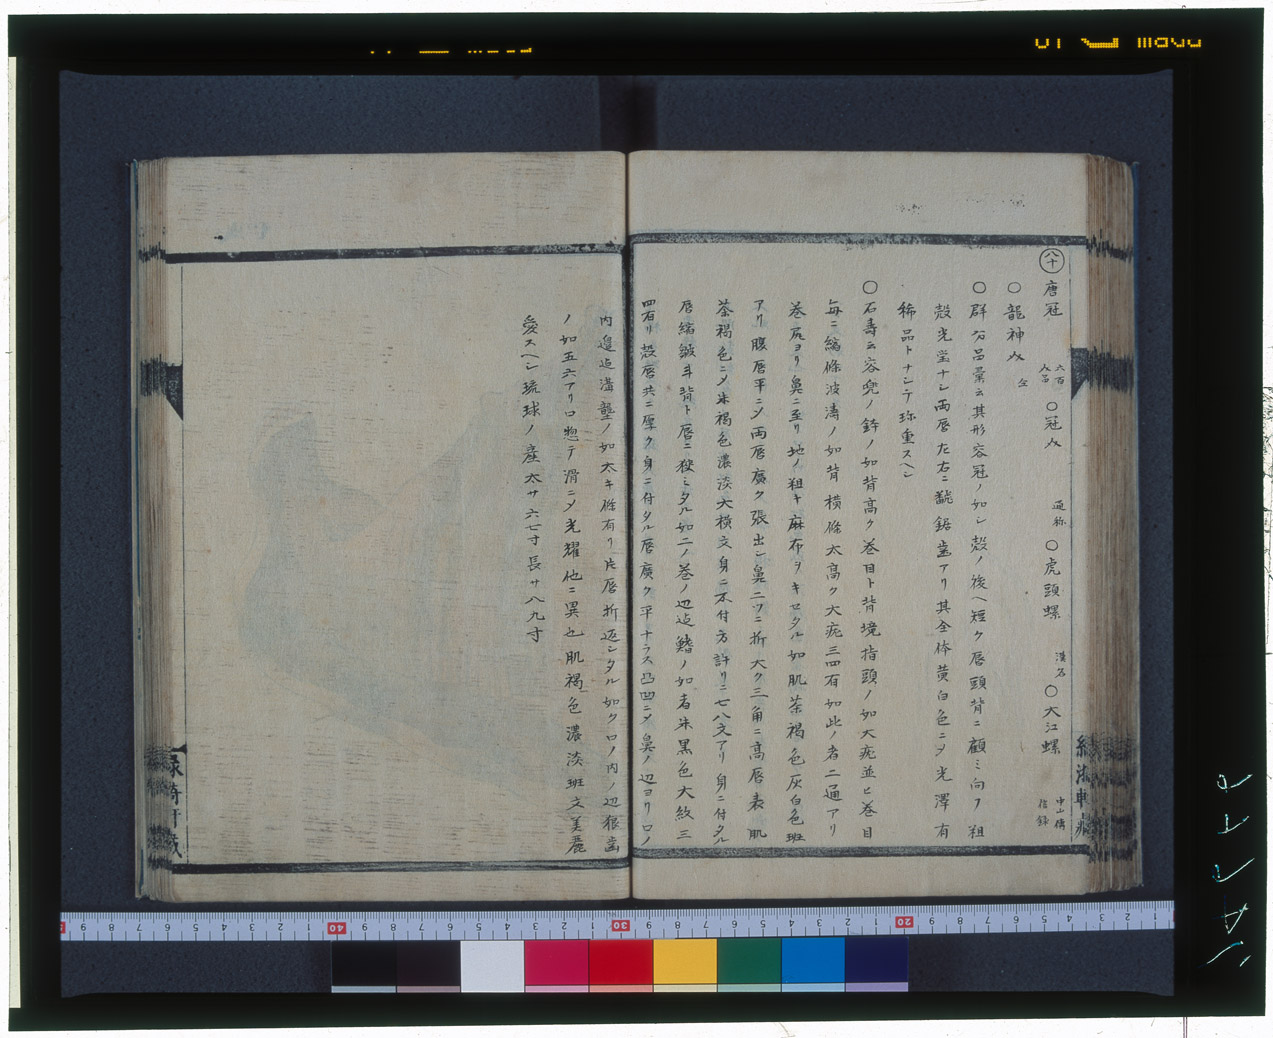 八十 唐冠 六百介品 〇冠介 通称 〇虎頭螺 漢名 〇大江螺 中山傳信録
〇龍神介 仝
〇群分品彙云其形容冠ノ如シ殻ノ後ヘ短ク唇頭背ニ顧ミ向フ粗
殻光瑩ナシ両唇左右ニ齬鋸歯アリ其全体黄白色ニメ光澤有
稀品トナシテ珍重スヘシ
〇石壽云容兜ノ鉢ノ如背高ク巻目ト背境指頭ノ如大疣並ヒ巻目
毎ニ縮條波濤ノ如背横條太高ク大疣三四有如此ノ者二通アリ
巻尻ヨリ鼻ニ至リ地ノ粗キ麻布ヲキセタル如肌茶褐色灰白色班
アリ腹唇平ニメ両唇廣ク張出シ鼻二ツニ折大ク三角ニ高唇表肌
茶褐色ニメ朱褐色濃淡大横文身ニ不付方許リニ七八文アリ身ニ付タル
唇縮皺斗背ト唇ニ狹ミタル如二ノ巻ノ辺迠鰭ノ如者朱黒色大紋三
四有リ殻唇共ニ厚ク身ニ付タル唇廣ク平ナラス凸凹ニメ鼻ノ辺ヨリロノ
内邉迠溝壟ノ如太キ條有リ片唇折返シタル如クロノ内ノ辺狼歯
ノ如五六アリロ惣テ滑ニメ光耀他ニ異也肌褐色濃淡班文美麗
愛スヘシ琉球ノ産太サ六七寸長サ八九寸